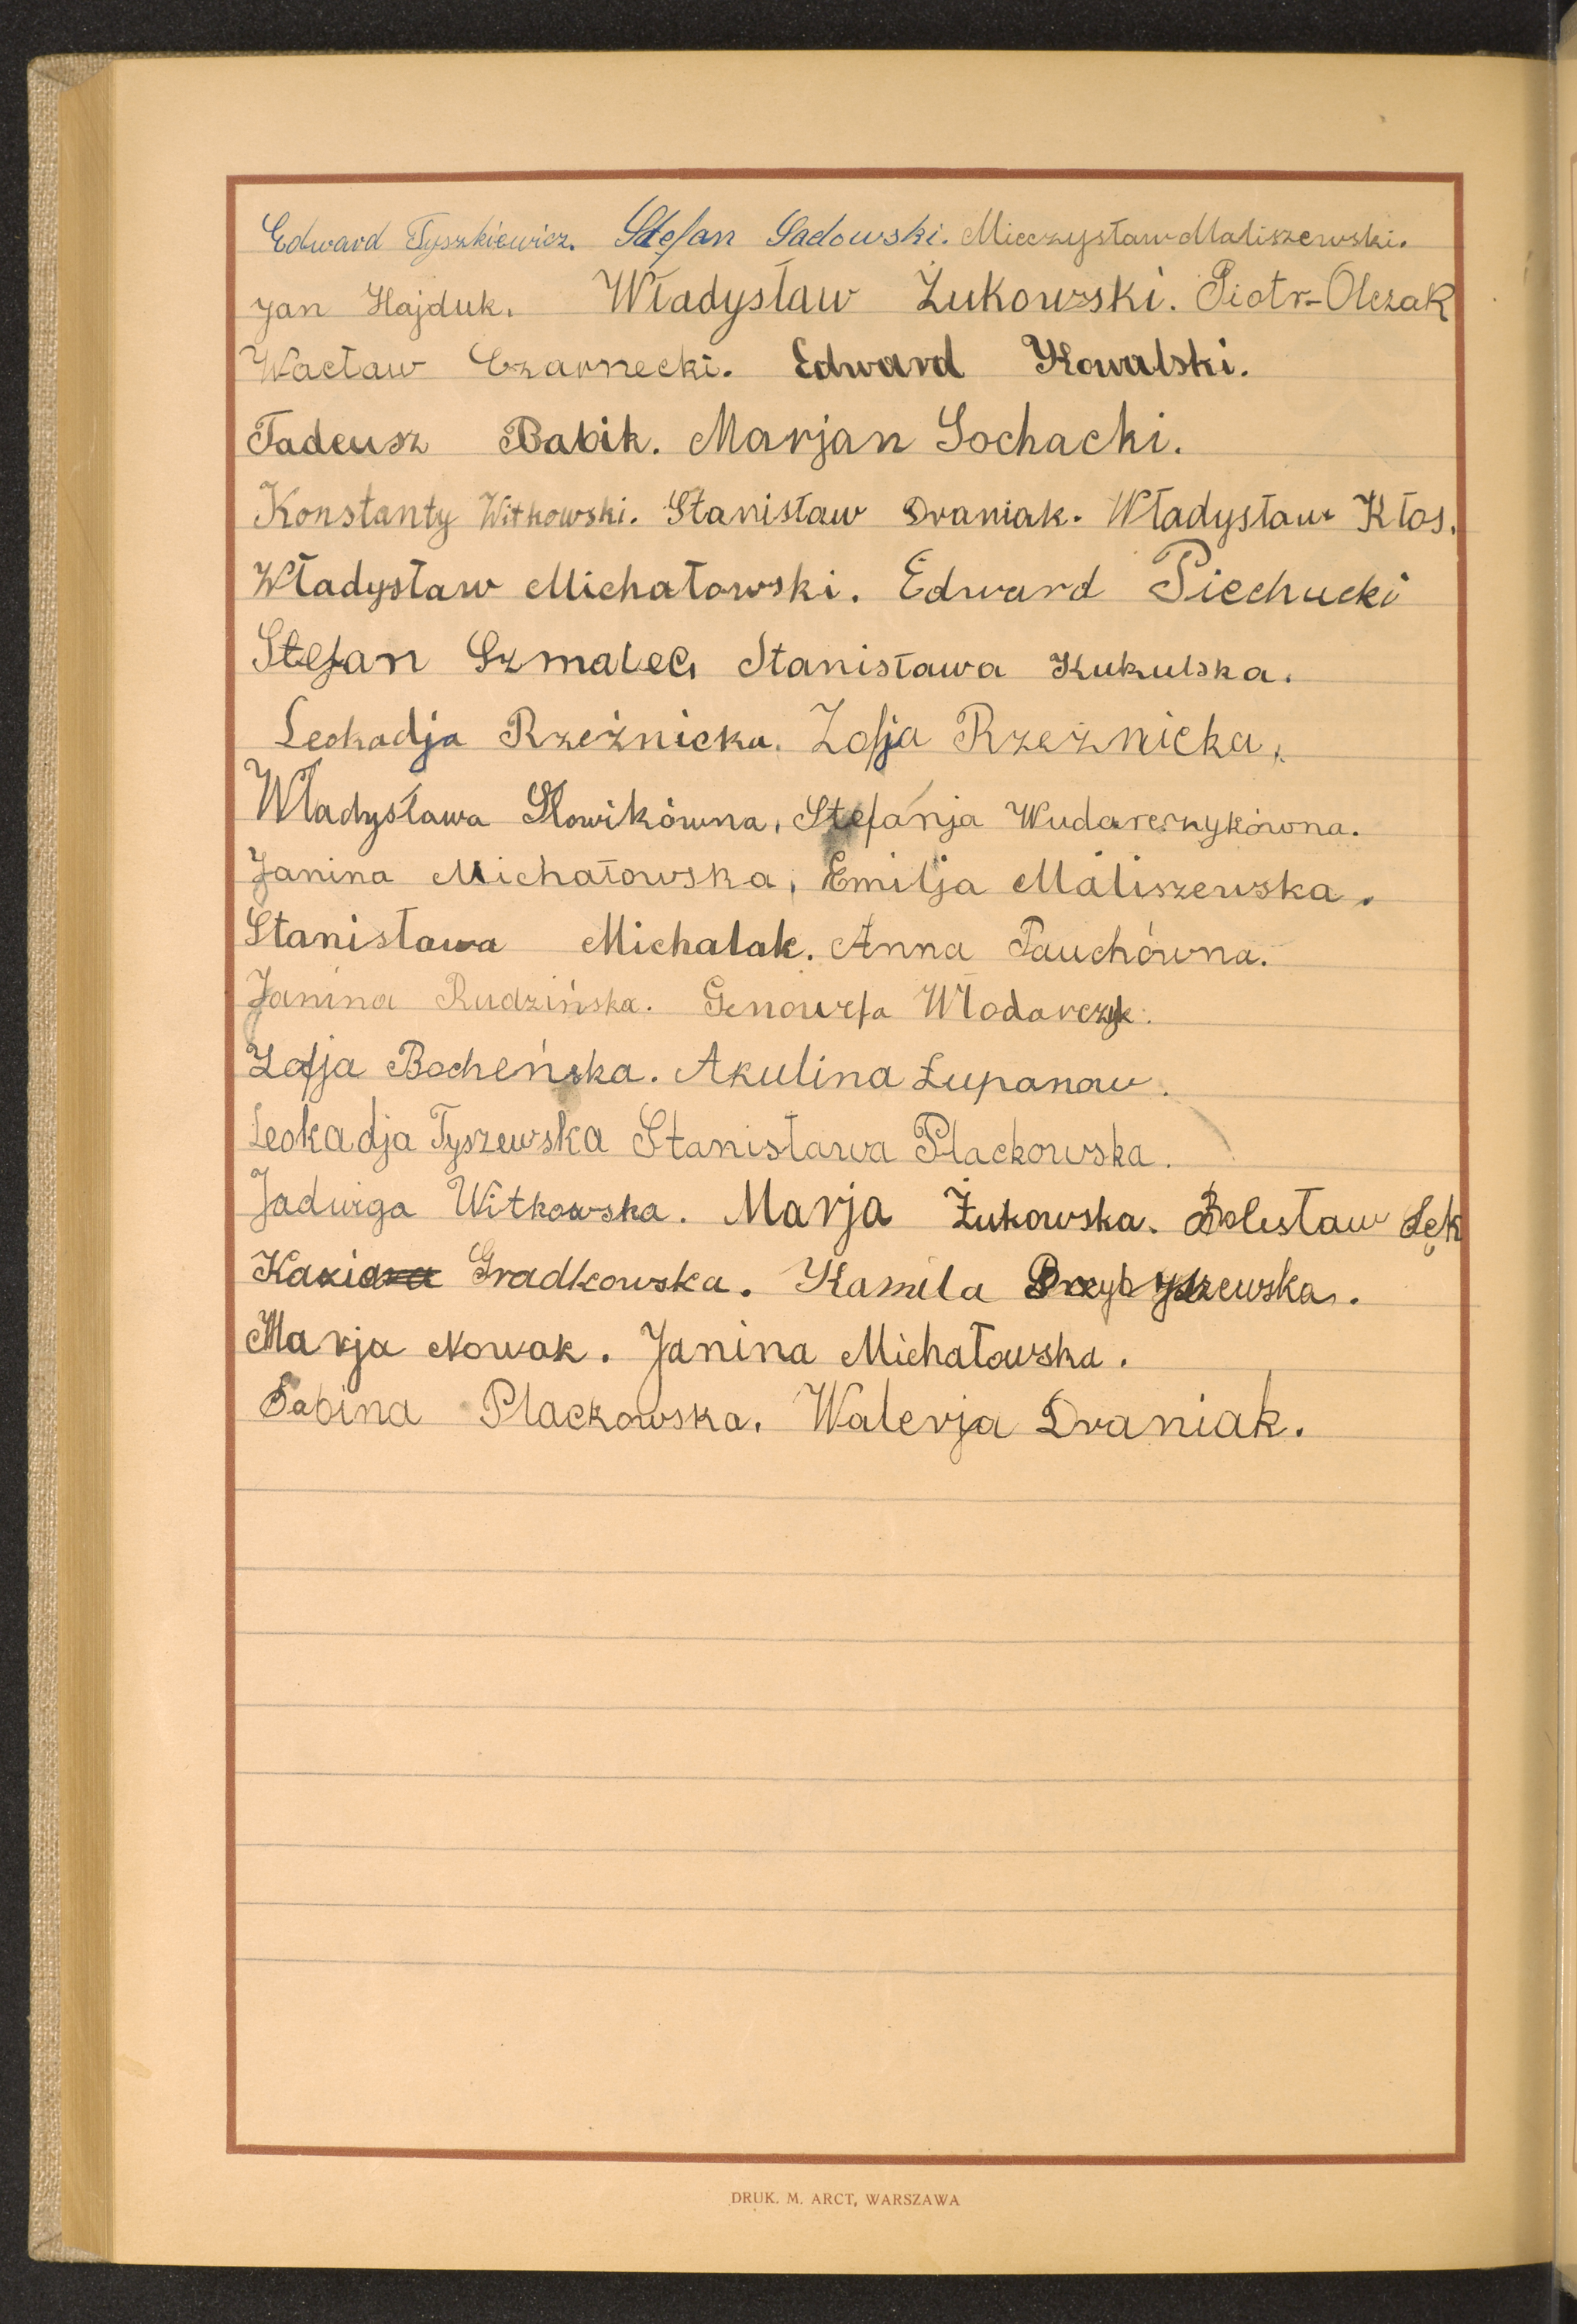 Edward Tyszkiewicz. Stefan Sadowski. Mieczysław Maliszewski.
Jan Hajduk. Władysław Żukowski. Piotr-Olczak
Wacław Czarnecki. Edward Kowalski.
Tadeusz Babik. Marjan Sochacki.
Konstanty Witkowski. Stanisław Draniak. Władysław Kłos.
Władysław Michałowski. Edward Piechucki
Stefan Szmalec. Stanisława Kukulska.
Leokadja Rzeźnicka. Zofja Rzeźnicka.
Władysława Słowikówna, Stefanja Wudarczykówna.
Janina Michałowska, Emilja Maliszewska.
Stanisława Michalak. Anna Pauchówna.
Janina Rudzińska. Genowefa Włodarczyk.
Zofja Bocheńska. Akulina Łupanow.
Leokadja Tyszewska Stanisława Płackowska.
Jadwiga Witkowska. Marja Żukowska. Bolesław Lęk
Gradkowska. Kamila Przybyszewska.
Marja Nowak. Janina Michałowska.
Sabina Plackowska. Walerja Draniak.
DRUK. M. ARCT, WARSZAWA